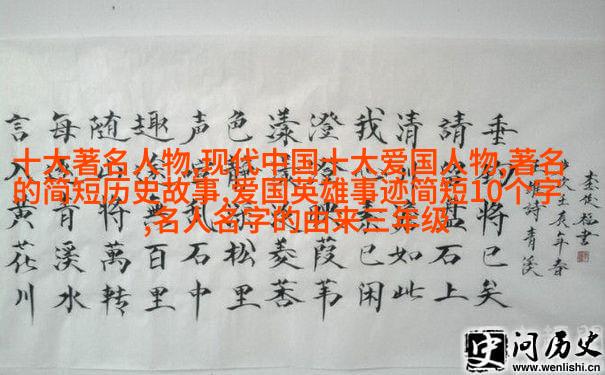 十大著名人物,现代中国十大爱国人物,著名
的简短历史故事,爱国英雄事迹简短10个字
,名人名字的由来三年级
言入黄花川
每青溪水
随将萬转
趣無百里
声乱石中
色松里
漾菱荇
澄葭苇
我素已闲
清如此
請石上
垂将已矣
诗青溪
问历史
www.wenlishi.cn